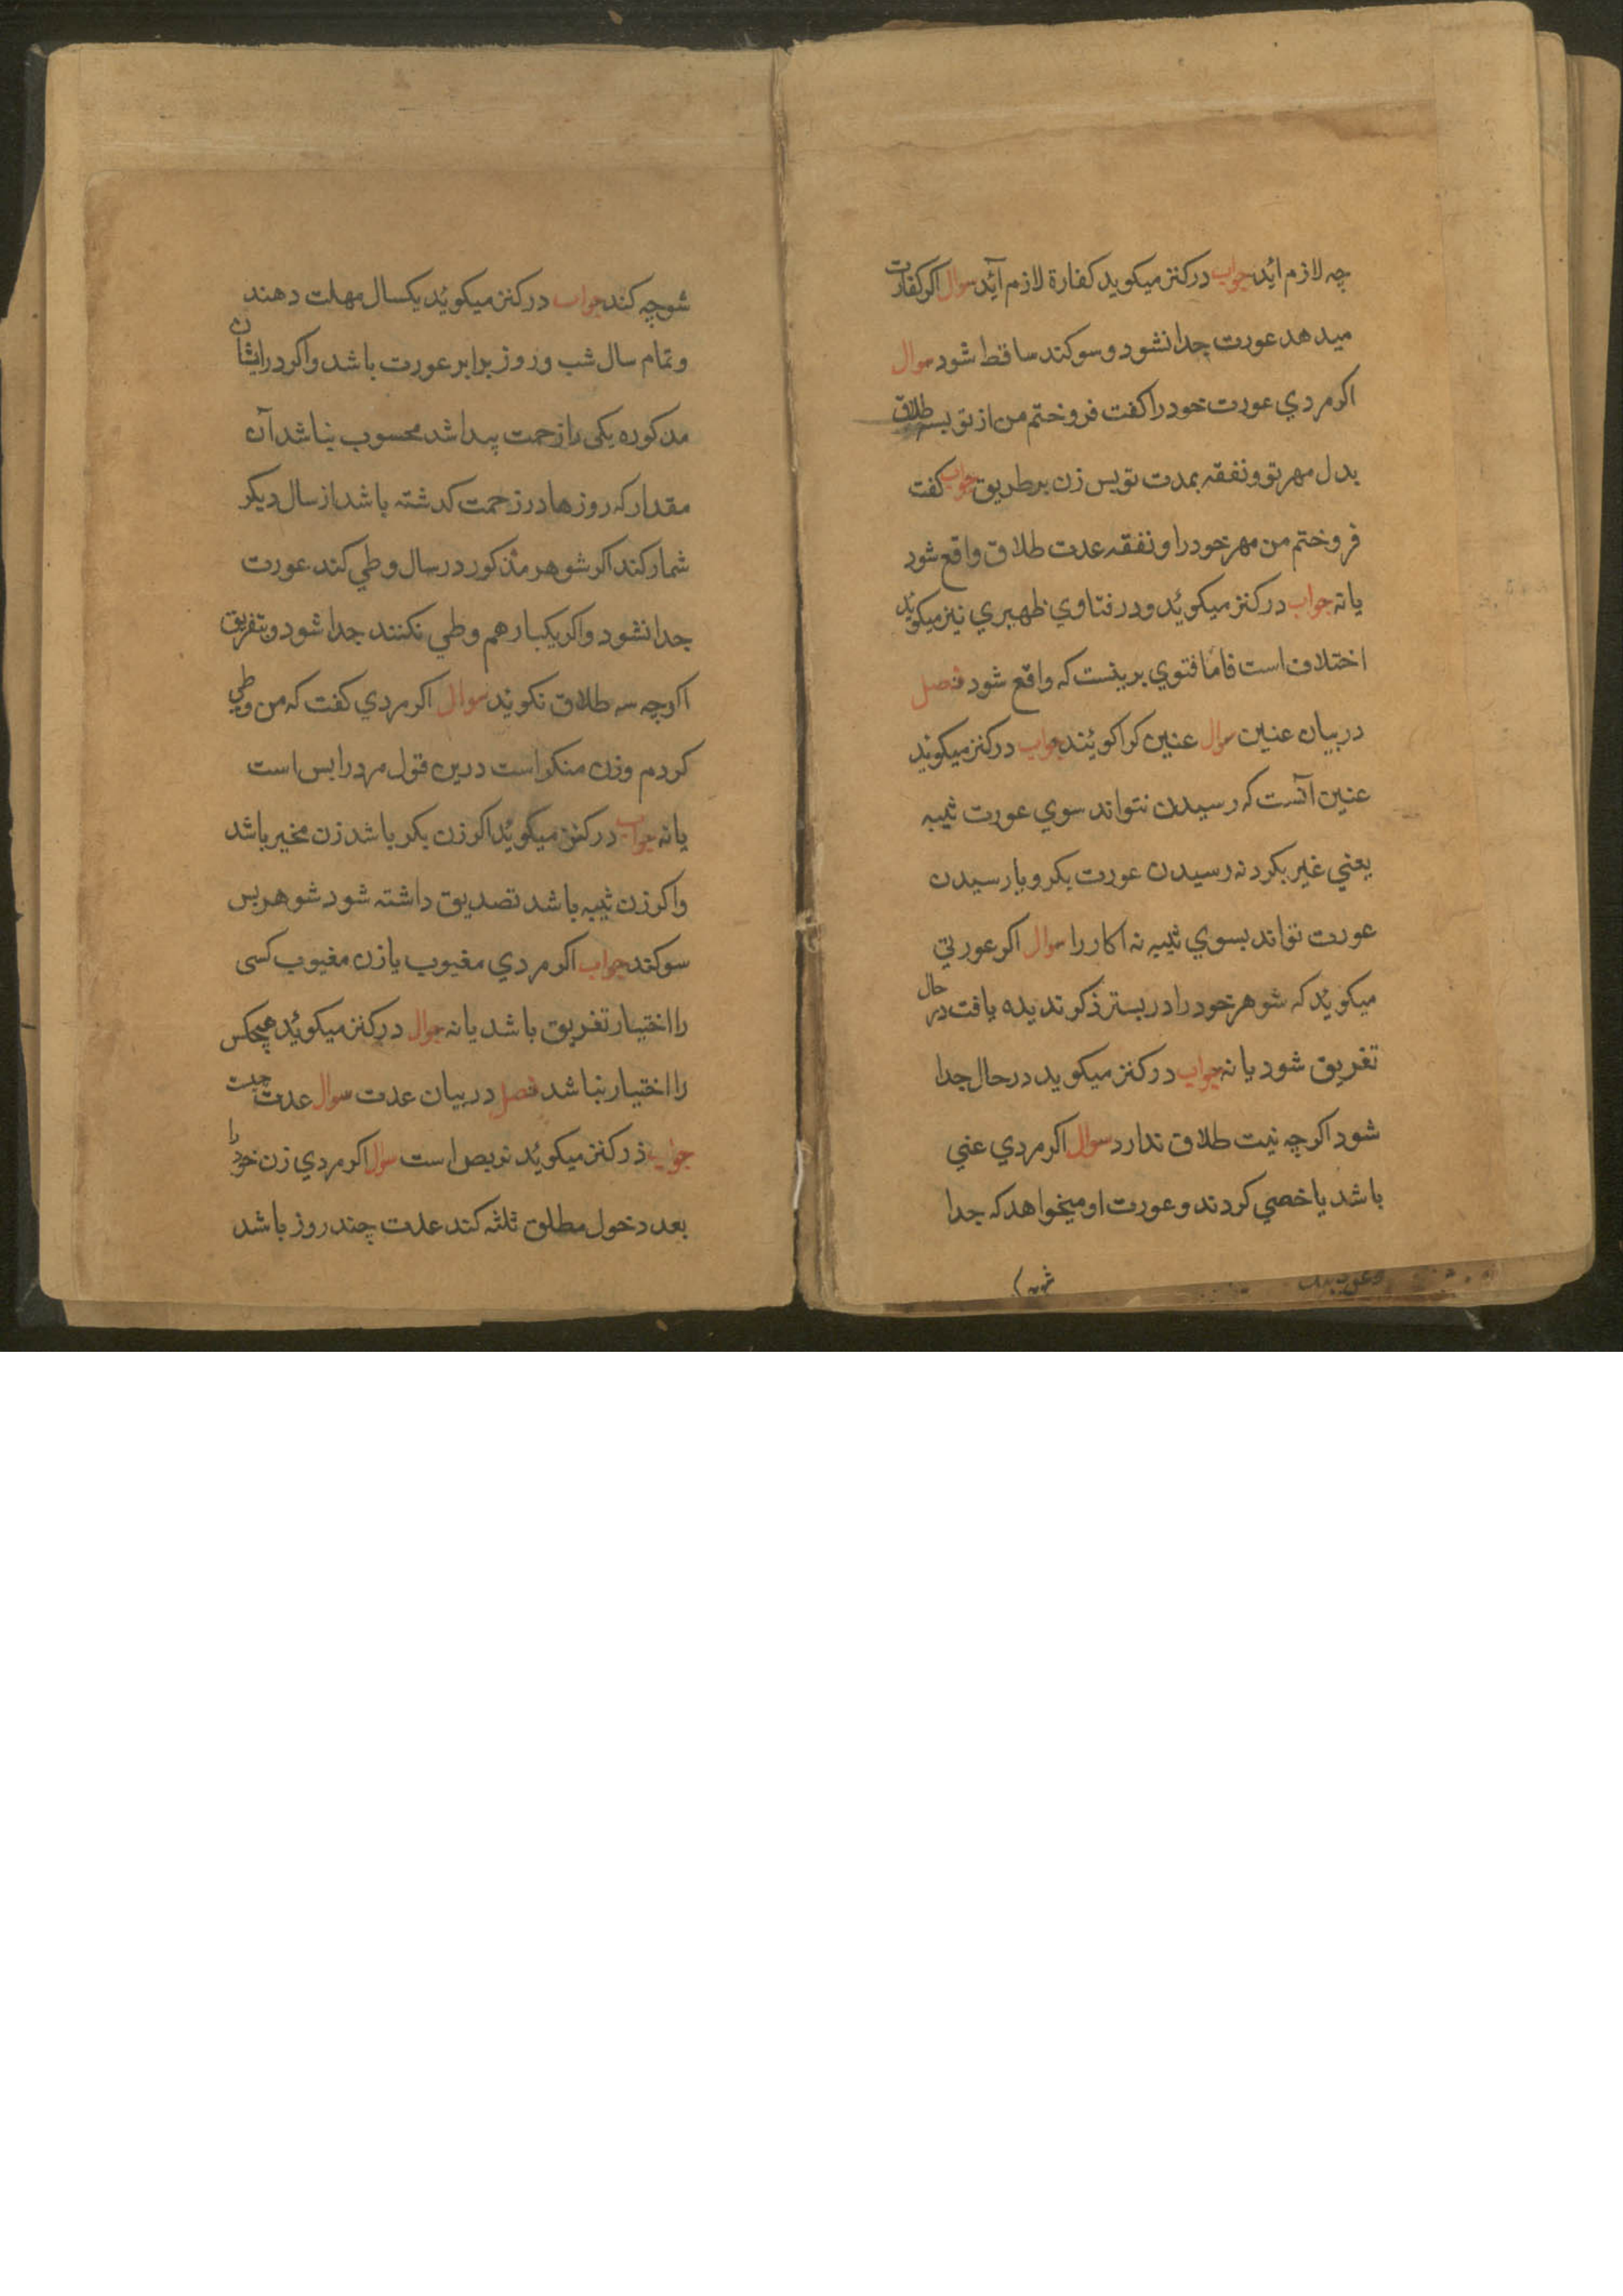 چه لازم آید جواب درکنز میکوید کفارة لازم آید سوال اکر کفارت
میدهد عورت جدا نشود و سوکند ساقط شود سوال
اکر مردي عورت خود را کفت فروختم من از تو بسه طلاق
بدل مهر تو و نفقه بمدت تو پس زن بر طریق جواب کفت
فروختم من مهر خود را و نفقه عدت طلاق واقع شود
یا نه جواب درکنز میکوئد و در فتاوي ظهیري نیز میکوید
اختلاف است فاما فتوي برینست که واقع شود فصل
در بیان عنین سوال عنین کرا کویند جواب درکنز میکوید
عنین آنست که رسیدن نتواند سوي عورت ثیبه
یعني غیر بکر و نه رسیدن عورت بکر و یا رسیدن
عورت تواند بسوي ثیبه نه ابکار را سوال اکر عورتي
میکوید که شوهر خود را در بستر ذکر ندیده یافت در حال
تفریق شود یا نه جواب درکنز میکوید در حال جدا
شود اکرچه نیت طلاق ندارد سوال اکر مردي عني
باشد یا خصي کردند و عورت او میخواهد که جدا
شود
شو چه کند جواب درکنز میکوئد یکسال مهلت دهند
و تمام سال شب و روز برابر عورت باشد و اکر در ایشان
مذکوره یکی را زحمت پیدا شد محسوب نباشد آن
مقدار که روزها در زحمت کذشته باشد از سال دیکر
شمار کند اکر شوهر مذکور در سال وطي کند عورت
جدا نشود و اکر یکبار هم وطي نکنند جدا شود و بتفریق
اکرچه سه طلاق نکوید سوال اکر مردي کفت که من وطي
کردم و زن منکر است درین قول مرد را بس است
یا نه جواب درکنز میکوئد اکر زن بکر باشد زن مخیر باشد
و اکر زن ثیبه باشد تصدیق داشته شود شوهر بس
سوکند جواب اکر مردي مغیوب یا زن مغیوب کسی
را اختیار تفریق باشد یا نه سوال درکنز میکوئد هیچکس
را اختیار نباشد فصل در بیان عدت سوال عدت چیست
جواب درکنز میکوئد تربص است سوال اکر مردي زن خود را
بعد دخول مطلق ثلثه کند عدت چند روز باشد